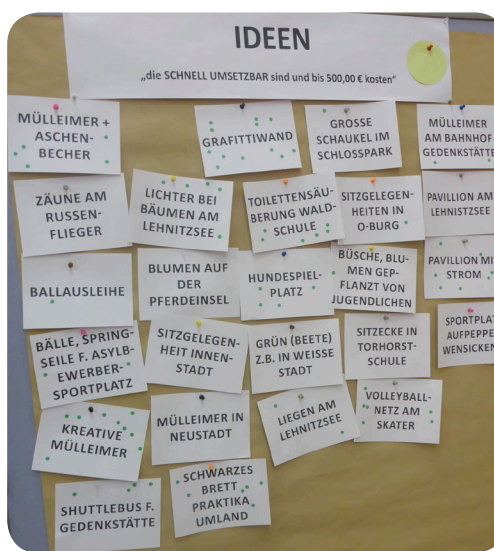 IDEEN
„die SCHNELL UMSETZBAR sind und bis 500,00 € kosten“
MÜLLEIMER +
ASCHEN-
BECHER
GRAFITTIWAND
GROSSE
SCHAUKEL IM
SCHLOSSPARK
MÜLLEIMER
AM BAHNHOF
GEDENKSTÄTTE
ZÄUNE AM
RUSSEN-
FLIEGER
LICHTER BEI
BÄUMEN AM
LEHNITZSEE
TOILETTENSÄU-
BERUNG WALD-
SCHULE
SITZGELEGEN-
HEITEN IN
O-BURG
PAVILLION AM
LEHNISTZSEE
BALLAUSLEIHE
BLUMEN AUF
DER
PFERDEINSEL
HUNDESPIEL-
PLATZ
BÜSCHE, BLU-
MEN GEP-
FLANZT VON
JUGENDLICHEN
PAVILLION MIT
STROM
BÄLLE, SPRING-
SEILE F. ASYLB-
EWERBER-
SPORTPLATZ
SITZGELEGEN-
HEIT INNEN-
STADT
GRÜN (BEETE)
Z.B. IN WEISSE
STADT
SITZECKE IN
TORHORST-
SCHULE
SPORTPLAT
AUFPEPPE
WENSICKEN
KREATIVE
MÜLLEIMER
MÜLLEIMER IN
NEUSTADT
LIEGEN AM
LEHNITZSEE
VOLLEYBALL-
NETZ AM
SKATER
SHUTTLEBUS F.
GEDENKSTÄTTE
SCHWARZES
BRETT
PRAKTIKA
UMLAND